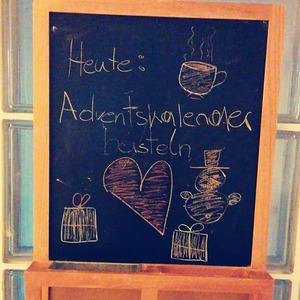 Heute:
Adventskalender
basteln